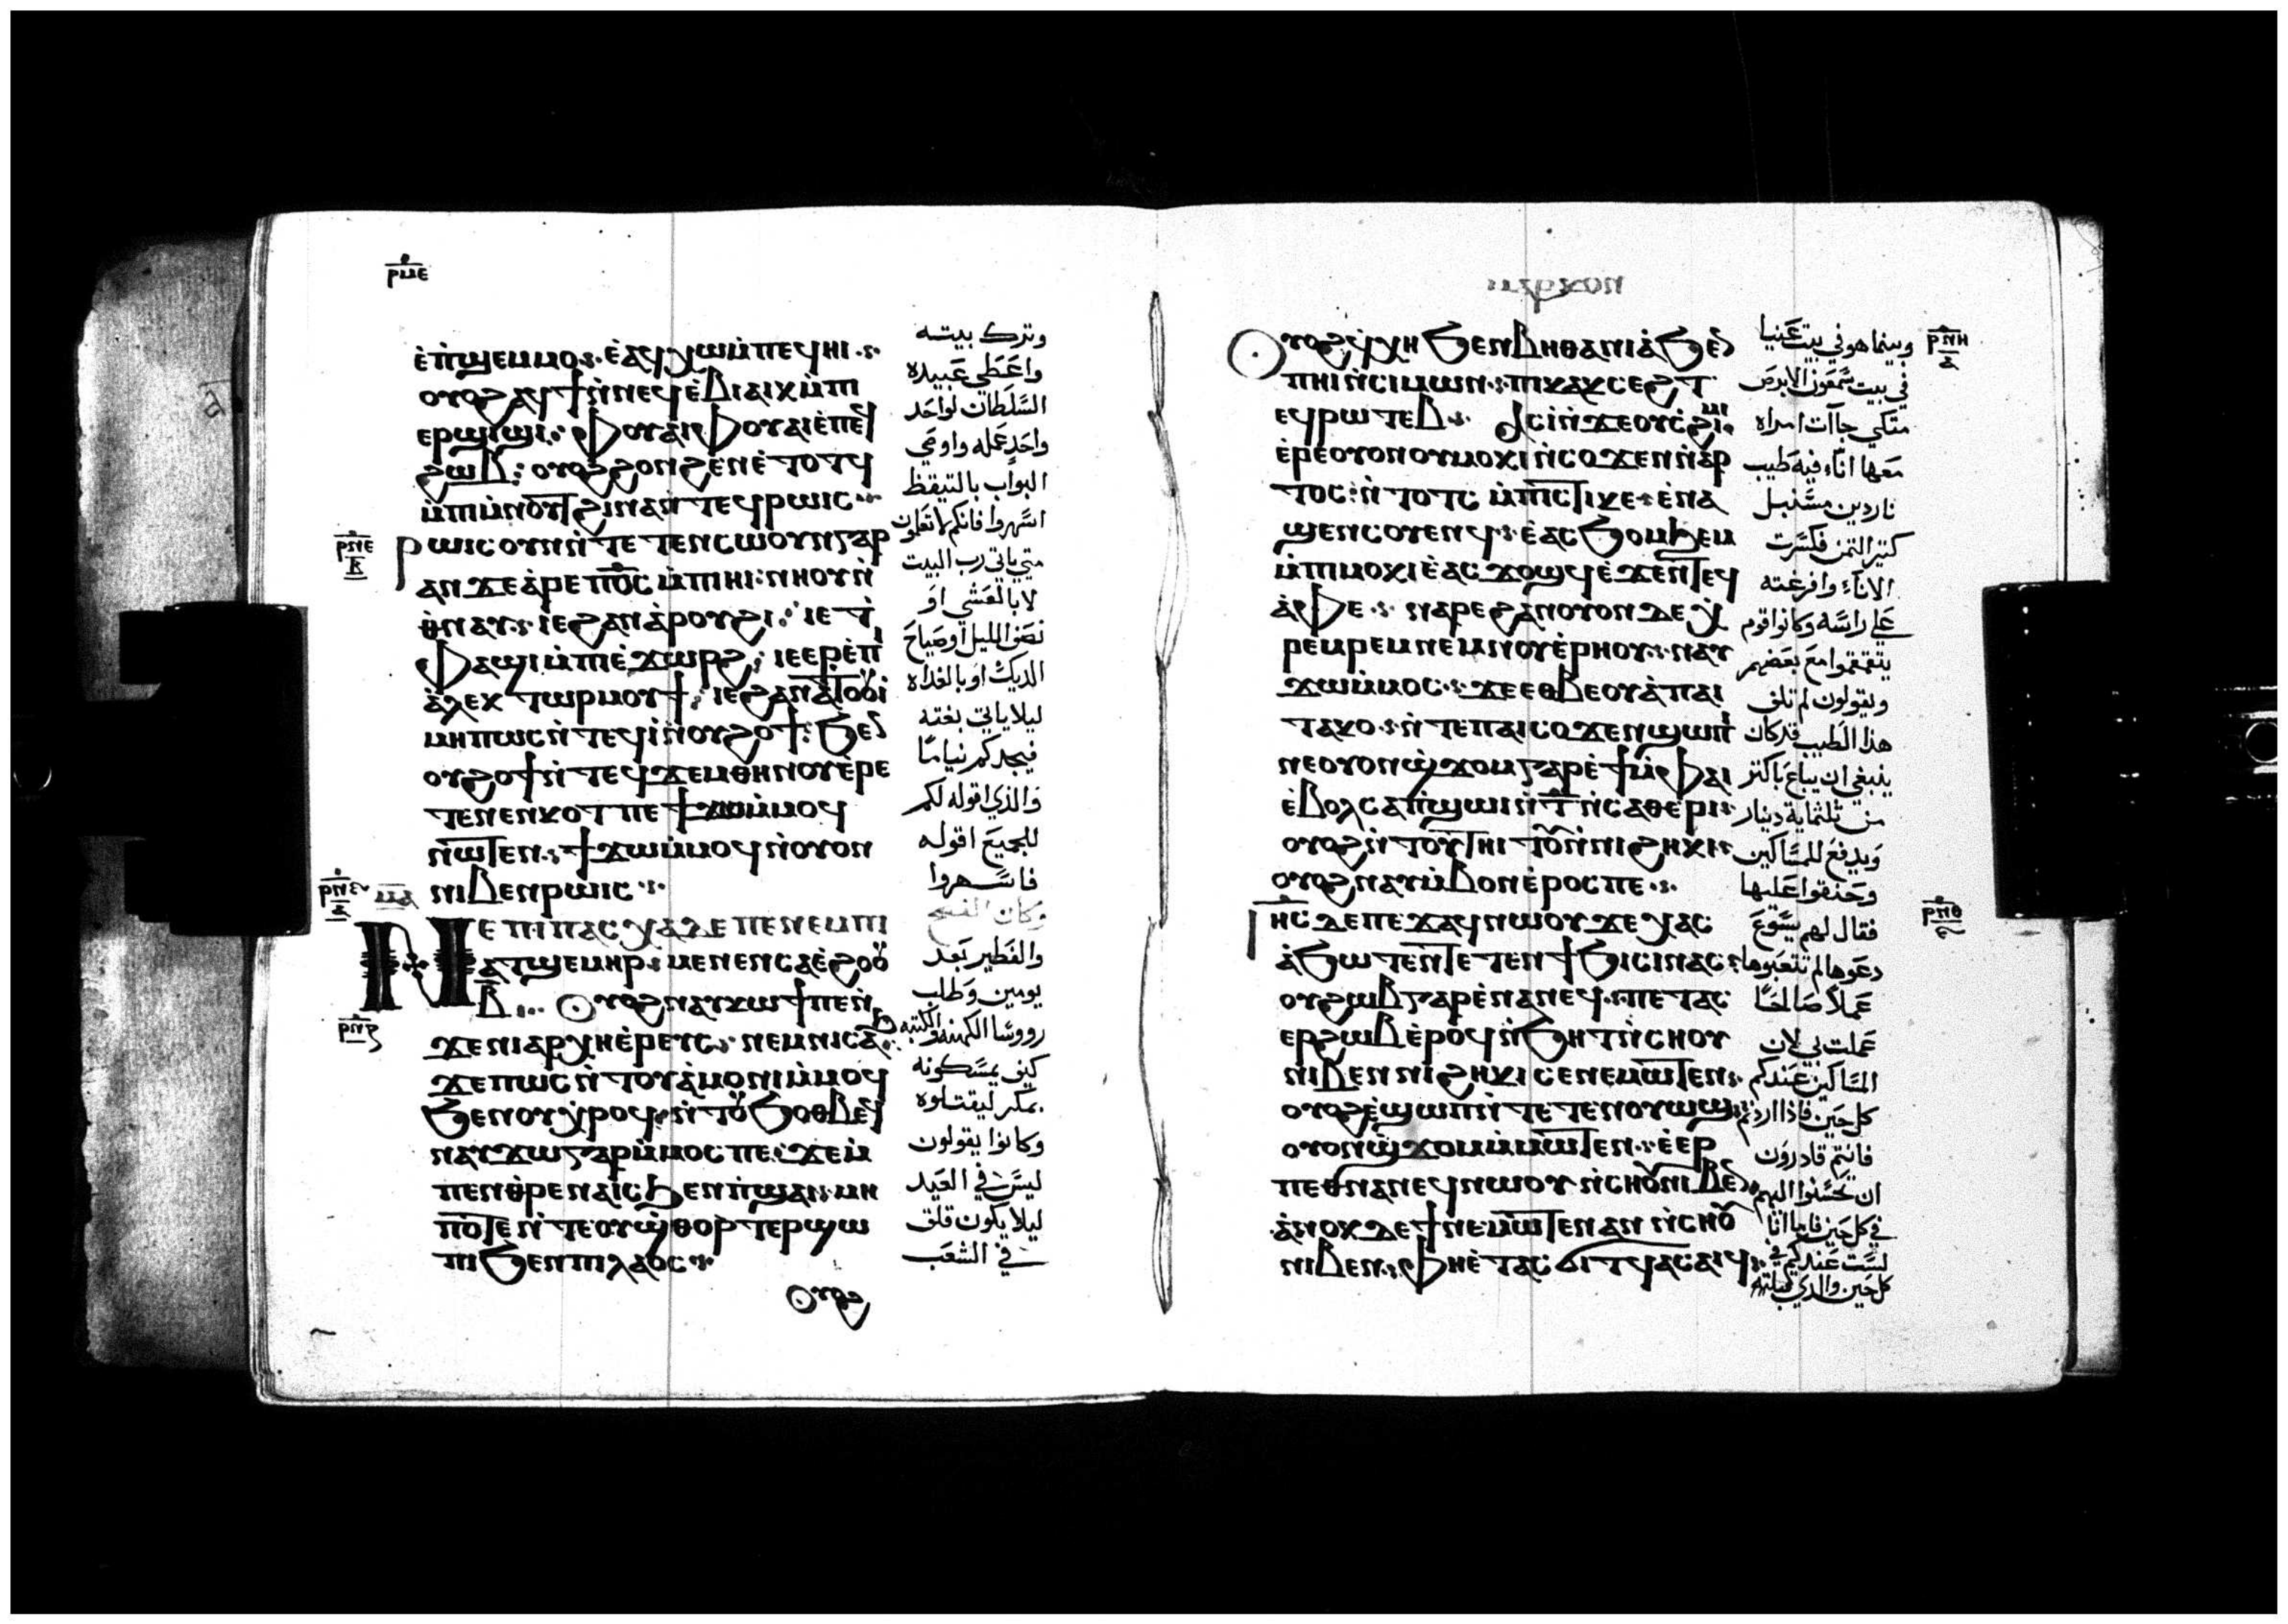 ⲣⲙⲉ
ⲉ̀ⲡϣⲉⲙⲙⲟ
ⲉ̀ⲁϥⲭⲱ ⲙ̀ⲡⲉϥⲏⲓ
ⲟⲩⲟϩ ⲁϥϯ ⲛ̀ⲛⲉϥⲉ̀ⲃⲓⲁⲓⲕ ⲙ̀ⲡⲓ
ⲉⲣϣⲓϣⲓ ⲫⲟⲩⲁⲓ ⲫⲟⲩⲁⲓ ⲉ̀ⲡⲉϥ
ϩⲱⲃ ⲟⲩⲟϩ ϩⲟⲛϩⲉⲛ ⲉ̀ⲧⲟⲧϥ
ⲙ̀ⲡⲓⲙ̀ⲛⲟⲩϯ ϩⲓⲛⲁ ⲛ̀ⲧⲉϥⲣⲱⲓⲥ
ⲣⲛⲉ
ⲃ
ⲣⲱⲓⲥ ⲟⲩⲛ ⲛ̀ⲧⲉⲧⲉⲛⲥⲱⲟⲩⲛ ⲅⲁⲣ
ⲁⲛ ϫⲉ ⲁ̀ⲣⲉ ⲡⲟ̅ⲥ̅ ⲙ̀ⲡⲏⲓ ⲛⲏⲟⲩ ⲛ̀
ⲑⲛⲁⲩ ⲓⲉ ϩⲁⲛⲁ̀ⲣⲟⲩϩⲓ ⲓⲉ ⲧ̀
ⲫⲁϣⲓ ⲙ̀ⲡⲓⲉ̀ϫⲱⲣϩ ⲓⲉ ⲉⲣⲉ̀ ⲡⲓ
ⲁ̀ⲗⲉⲕⲧⲱⲣ ⲙⲟⲩϯ ⲓⲉ ϩⲁⲛⲁ̀ⲧⲟⲟⲩⲓ̀
ⲙⲏⲡⲱⲥ ⲛ̀ⲧⲉϥⲓ̀ ⲛ̀ⲟⲩϩⲟϯ ϧⲉⲛ
ⲟⲩϩⲟϯ ⲛ̀ⲧⲉϥϫⲉⲙ ⲑⲏⲛⲟⲩ ⲉ̀ⲣⲉ
ⲧⲉⲛⲉⲛⲕⲟⲧ ⲡⲉϯϫⲱ ⲙ̀ⲙⲟϥ
ⲛ̀ⲱⲧⲉⲛ ϯϫⲱ ⲙ̀ⲙⲟϥ ⲛ̀ⲟⲩⲟⲛ
ⲛⲓⲃⲉⲛ ⲣⲱⲓⲥ
ⲙⲁ
ⲛⲉ ⲡⲓⲡⲁⲥⲭⲁ ⲇⲉ ⲡⲉ ⲛⲉⲙ ⲡⲓ
ⲁⲧϣⲉⲙⲏⲣ ⲙⲉⲛⲉⲛⲥⲁ ⲉ̀ϩⲟⲟⲩ
ⲃ̅ ⲟⲩⲟϩ ⲛⲁⲩⲕⲱϯ ⲡⲉ ⲛ̀
ϫⲉ ⲛⲓⲁⲣⲭⲏⲉ̀ⲣⲉⲩⲥ ⲛⲉⲙ ⲛⲓⲥⲁϧ
ϫⲉ ⲡⲱⲥ ⲛ̀ⲧⲟⲩⲁ̀ⲙⲟⲛⲓ ⲙ̀ⲙⲟϥ
ϧⲉⲛ ⲟⲩⲭ̀ⲣⲟϥ ⲛ̀ⲧⲟⲩϧⲟⲑⲃⲉϥ
ⲛⲁⲩϫⲱ ⲅⲁⲣ ⲙ̀ⲙⲟⲥ ⲡⲉ ϫⲉ ⲙ̀
ⲡⲉⲛⲑⲣⲉⲛⲁⲓⲥ ϧⲉⲛ ⲡ̀ϣⲁⲓ ⲙⲏ
ⲡⲟⲧⲉ ⲛ̀ⲧⲉ ⲟⲩϣ̀ⲑⲟⲣⲧⲉⲣ ϣⲱ
ⲡⲓ ϧⲉⲛ ⲡⲓⲗⲁⲟⲥ
ⲟⲩⲟϩ
وترك بيته
واعطي عبيده
السلطان لواحد
واحد عمله واوصي
البواب بالتيقظ
اسهروا فانكم لا تعلمون
متي ياتي رب البيت
لا بالعشي او
نصف الليل او صياح
الديك او بالغداه
ليلا ياتي بغته
فيجدكم نياما
والذي اقوله لكم
للجميع اقوله
فاسهروا
وكان الفسح
والفطير بعد
يومين وطلب
رووسا الكهنه والكتبه
كيف يمسكونه
بمكر ليقتلوه
وكانوا يقولون
ليس في العيد
ليلا يكون قلق
في الشعب
ⲟⲩⲟϩ ⲉϥⲭⲏ ϧⲉⲛ ⲃⲏⲑⲁⲛⲓⲁ̀ ϧⲉⲛ
ⲡⲏⲓ ⲛ̀ⲥⲓⲙⲱⲛ ⲡⲓⲕⲁⲕⲥⲉϩⲧ
ⲉϥⲣⲱⲧⲉⲃ ⲁⲥⲓ̀ ⲛ̀ϫⲉ ⲟⲩⲥ̀ϩⲓⲙⲓ
ⲉ̀ⲣⲉ̀ ⲟⲩⲟⲛ ⲟⲩⲙⲟⲕⲓ ⲛ̀ⲥⲟϫⲉⲛ ⲛ̀ⲛⲁⲣ
ⲧⲟⲥ ⲛ̀ⲧⲟⲧⲥ ⲙ̀ⲡⲓⲥϯⲕⲉ ⲉ̀ⲛⲁ
ϣⲉⲛⲥⲟⲩⲉⲛϥ ⲉ̀ⲁⲥϧⲟⲙϧⲉⲙ
ⲙ̀ⲡⲓⲙⲟⲕⲓ ⲉ̀ⲁⲥϫⲟϣϥ ⲉ̀ϫⲉⲛ ⲧⲉϥ
ⲁ̀ⲫⲉ ⲛⲁⲣⲉ ϩⲁⲛⲟⲩⲟⲛ ⲇⲉ ⲭ̀
ⲣⲉⲙⲣⲉⲙ ⲛⲉⲙ ⲛⲟⲩⲉ̀ⲣⲏⲟⲩ ⲛⲁⲩ
ϫⲱ ⲙ̀ⲙⲟⲥ ϫⲉ ⲉⲑⲃⲉ ⲟⲩ ⲁ̀ ⲡⲁⲓ
ⲧⲁⲕⲟ ⲛ̀ⲧⲉ ⲡⲁⲓⲥⲟϫⲉⲛ ϣⲱⲡⲓ
ⲛⲉ ⲟⲩⲟⲛ ϣ̀ϫⲟⲙ ⲅⲁⲣ ⲉ̀ϯ ⲙ̀ⲫⲁⲓ
ⲉ̀ⲃⲟⲗ ⲥⲁⲡ̀ϣⲱⲓ ⲛ̀ⲧ̅ ⲛ̀ⲥⲁⲑⲉⲣⲓ
ⲟⲩⲟϩ ⲛ̀ⲧⲟⲩⲧⲏⲓⲧⲟⲩ ⲛ̀ⲛⲓϩⲏⲕⲓ
ⲟⲩⲟϩ ⲛⲁⲩⲙ̀ⲃⲟⲛ ⲉ̀ⲣⲟⲥ ⲡⲉ
ⲓⲏⲥ ⲇⲉ ⲡⲉϫⲁϥ ⲛⲱⲟⲩ ϫⲉ ⲭⲁⲥ
ⲁ̀ϧⲱⲧⲉⲛ ⲧⲉⲧⲉⲛϯϧⲓⲥⲓ ⲛⲁⲥ
ⲟⲩϩⲱⲃ ⲅⲁⲣ ⲉ̀ⲛⲁⲛⲉϥ ⲡⲉⲧⲁⲥ
ⲉⲣϩⲱⲃ ⲉ̀ⲣⲟϥ ⲛ̀ϧⲏⲧ ⲛ̀ⲥⲏⲟⲩ
ⲛⲓⲃⲉⲛ ⲛⲓϩⲏⲕⲓ ⲥⲉⲛⲉⲙⲱⲧⲉⲛ
ⲟⲩⲟϩ ⲉ̀ϣⲱⲡ ⲛ̀ⲧⲉⲧⲉⲛⲟⲩⲱϣ
ⲟⲩⲟⲛ ϣ̀ϫⲟⲙ ⲙ̀ⲙⲱⲧⲉⲛ ⲉ̀ⲉⲣ
ⲡⲉⲑⲛⲁⲛⲉϥ ⲛⲱⲟⲩ ⲛ̀ⲥⲏⲟⲩ ⲛⲓⲃⲉⲛ
ⲁ̀ⲛⲟⲕ ⲇⲉ ϯⲛⲉⲙⲱⲧⲉⲛ ⲁⲛ ⲛ̀ⲥⲏⲟⲩ
ⲛⲓⲃⲉⲛ ⲫⲏⲉ̀ⲧⲁⲥϭⲓⲧϥ ⲁⲥⲁⲓϥ
وبينما هو في بيت عنيا
في بيت سمعون الابرص
متكي جآت امراه
معها انآء فيه طيب
ناردين مسنبل
كتير التمن فكسرت
الانآء وافرغته
علي راسه وكانوا قوم
يتقمقموا مع بعضهم
ويقولون لم تلف
هذا الطيب قد كان
ينبغي ان يباع باكتر
من تلتماية دينار
ويدفع للمساكين
وحنقوا عليها
فقال لهم يسوع
دعوها لم تتعبوها
عملا صالحا
عملت بي لان
المساكين عندكم
كل حين فاذا اردتم
فانتم قادرون
ان تحسنوا اليهم
في كل حين فاما انا
لست عندكم في
كل حين والذي
ⲣⲛⲏ
ⲣⲛⲑ